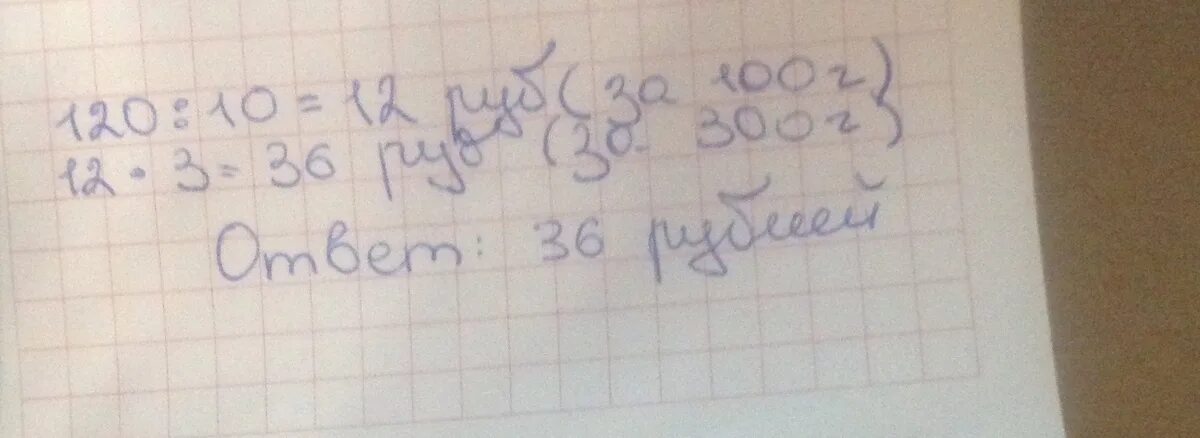 120 : 10 = 12 руб (за 100 г)
12 · 3 = 36 руб (за 300 г)
Ответ: 36 рублей